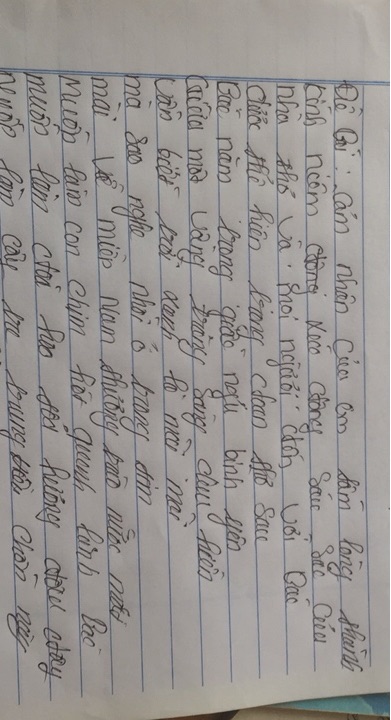 Đề Bài: Cảm nhận của em tấm lòng thành
kính niềm động xúc động sâu sắc của
nhà thơ và mọi người đến với Bác
được thể hiện trong đoạn thơ sau
Bác nằm trong giấc ngủ bình yên
Giữa một vầng trăng sáng dịu hiền
Vẫn biết trời xanh là mãi mãi
mà sao nghe nhói ở trong tim
mai về miền Nam thương trào nước mắt
Muốn làm con chim hót quanh lăng Bác
muốn làm đóa hoa tỏa hương đâu đây
muốn làm cây tre trung hiếu chốn này